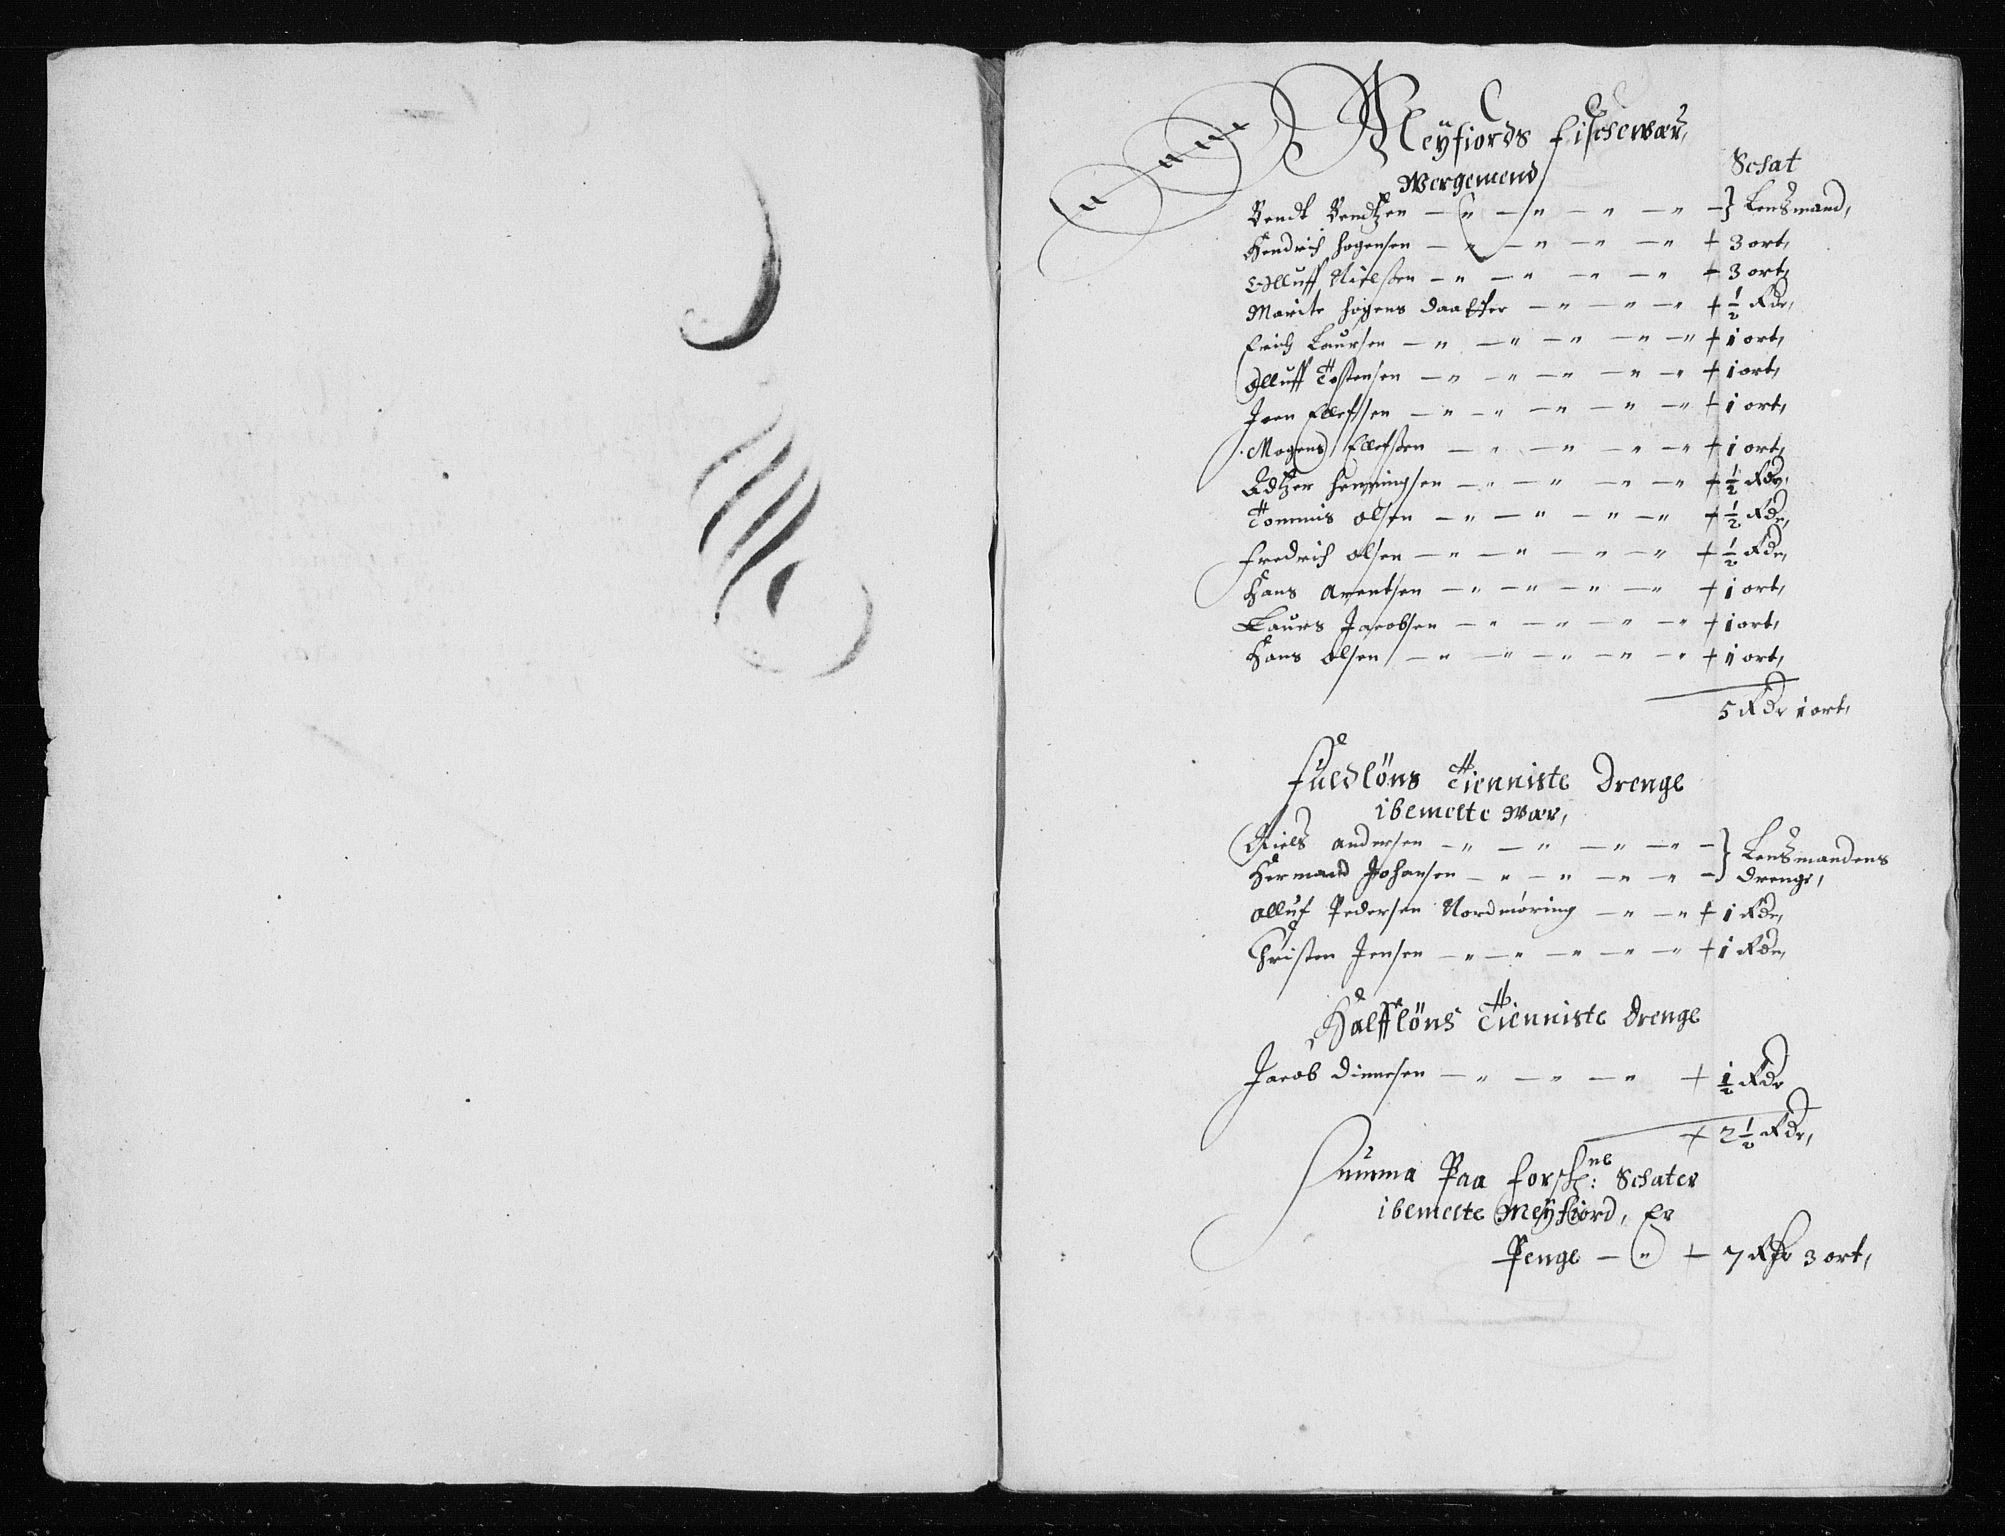 Meÿfiords Fischewær,
Wergemend
Schat
Bendt Bendtzen — " — " — " — " — } Lensmand,
Hendrich hogensen — " — " — " — " + 3 ort,
Olluff Nielssen — " — " — " — " + 3 ort,
Marite hogens daatter — " — " — " + ½ Rdr,
Erich Laursen — " — " — " — " — " + 1 ort,
Olluff Tostensen — " — " — " — " — " + 1 ort,
Joen Ellefssen — " — " — " — " — " + 1 ort,
Mogens Ellefssen — " — " — " — " + 1 ort,
Adtzer henningsen — " — " — " — " + ½ Rdr,
Tommis olsen — " — " — " — " + ½ Rdr,
Fredrich olsen — " — " — " — " + ½ Rdr,
Hans arentsen — " — " — " — " + 1 ort,
Laurs Jacobsen — " — " — " — " + 1 ort,
Hans olsen — " — " — " — " — " + 1 ort,
5 Rdr 1 ort,
Fuldlöns Tienniste Drenge
ibemelte Wær,
Niels andersen — " — " — " — " — } Lensmandens
Hermand Johansen — " — " — " — " — } drenge,
olluf Pedersen Nordmøring — " — " + 1 Rdr,
Christen Jensen — " — " — " — " — " + 1 Rdr,
Halfflöns Tienniste Drenge
Jacob dinnesen — " — " — " + ½ Rdr
+ 2½ Rdr,
Summa Paa forschne: Schater
ibemelte Meÿfiord, Er
Penge — " + 7 Rdr 3 ort,